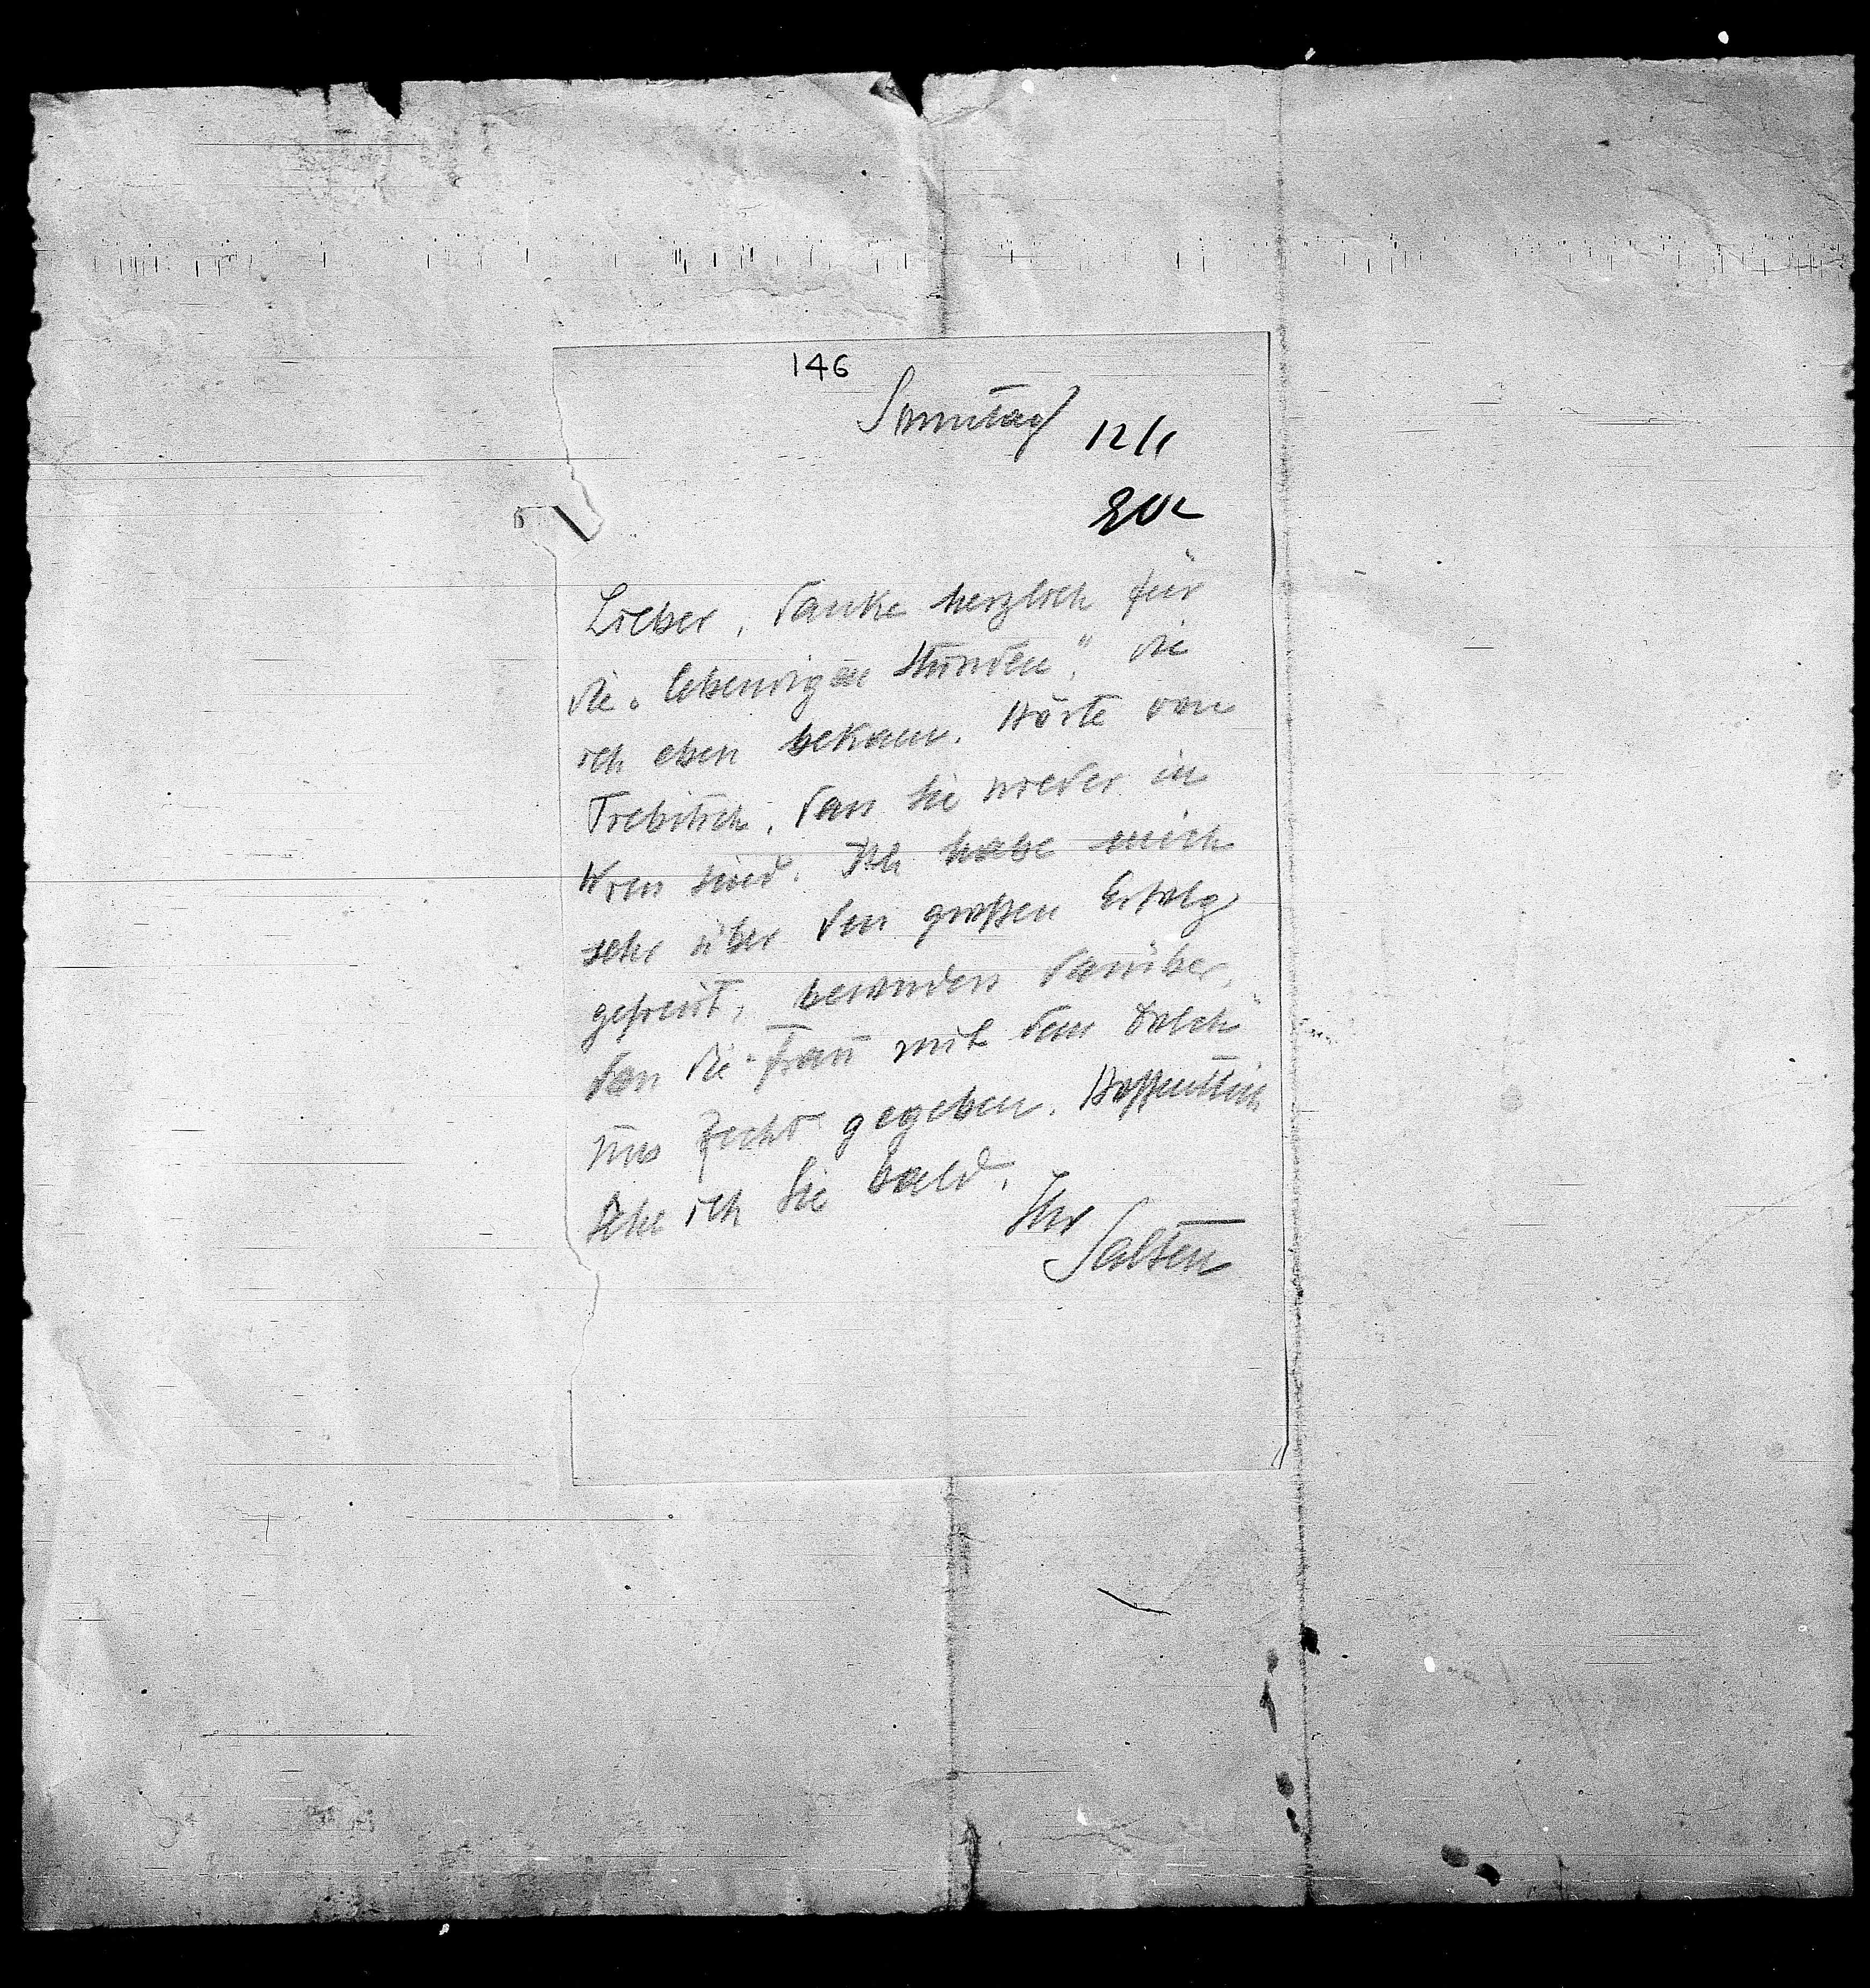 146
Sonntag 12/1
902
Lieber, danke herzlich für
die „lebendigen Stunden", die
ich eben bekam. Hörte von
Trebitsch, dass Sie wieder in
Wien sind. Ich habe mich
sehr über den großen Erfolg
gefreut, besonders darüber,
dass die „Frau mit dem Dolch"
uns Recht gegeben. Hoffentlich
sehe ich Sie bald.
Ihr
Salten